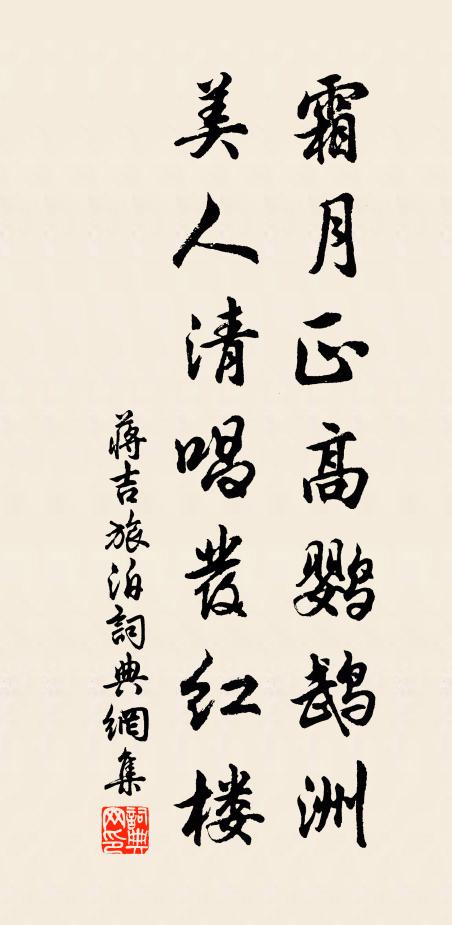 霜月正高鹦鹉洲
美人清唱發红楼
蒋吉旅泊詞典網集
詞典网印